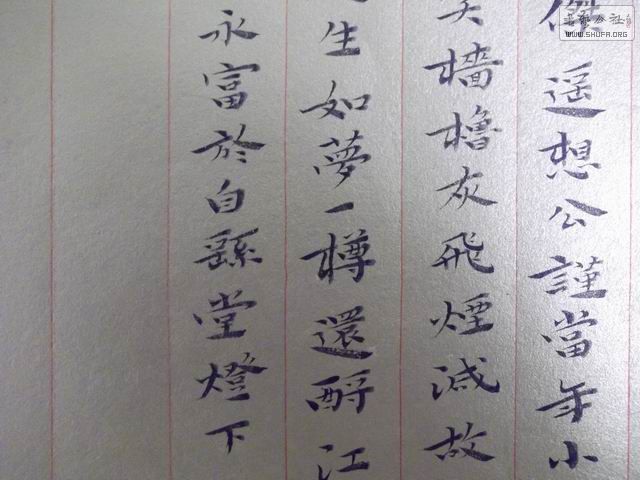 傑遥想公謹當年小
笑檣櫓灰飛煙滅故
生如夢一樽還酹江
永富於自繇堂燈下
WWW.SHUFA.ORG